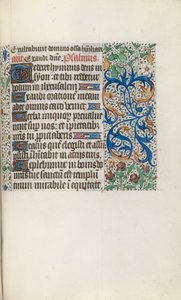 Exultabunt domino ossa
Exaudi Psalmus.
Te decet hymnus deus in
syon: et tibi reddetur
votum in iherusalem
Exaudi orationē meam
ad te omnis caro veniet
Verba iniquorū prevalue
runt sup nos: et īpietatib
nris tu ppiciaberis
Beatus quē elegisti et assū
psisti īhabitabit in atriis tuis
Replebimur in bonis do
mus tue sanctū est templū
tuum mirabile ī equitate